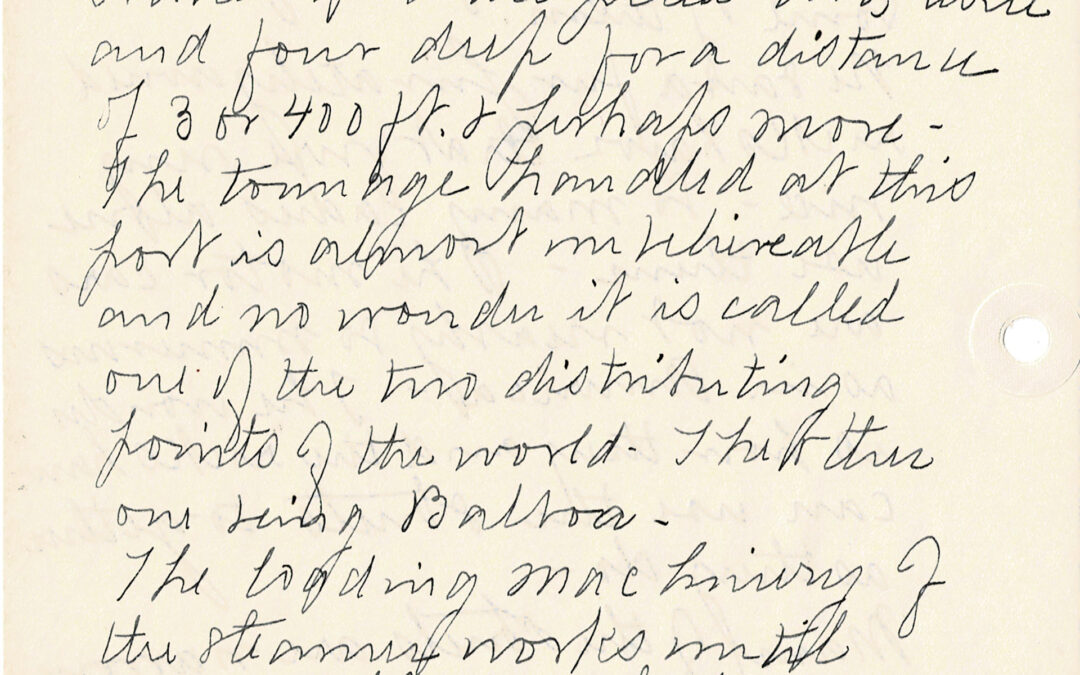 and four deep for a distance
of 3 or 400 ft. & perhaps more -
The tonnage handled at this
port is almost unbelievable
and no wonder it is called
one of the two distributing
points of the world. The other
one being Balboa -
The loading machinery of
the steamer works until